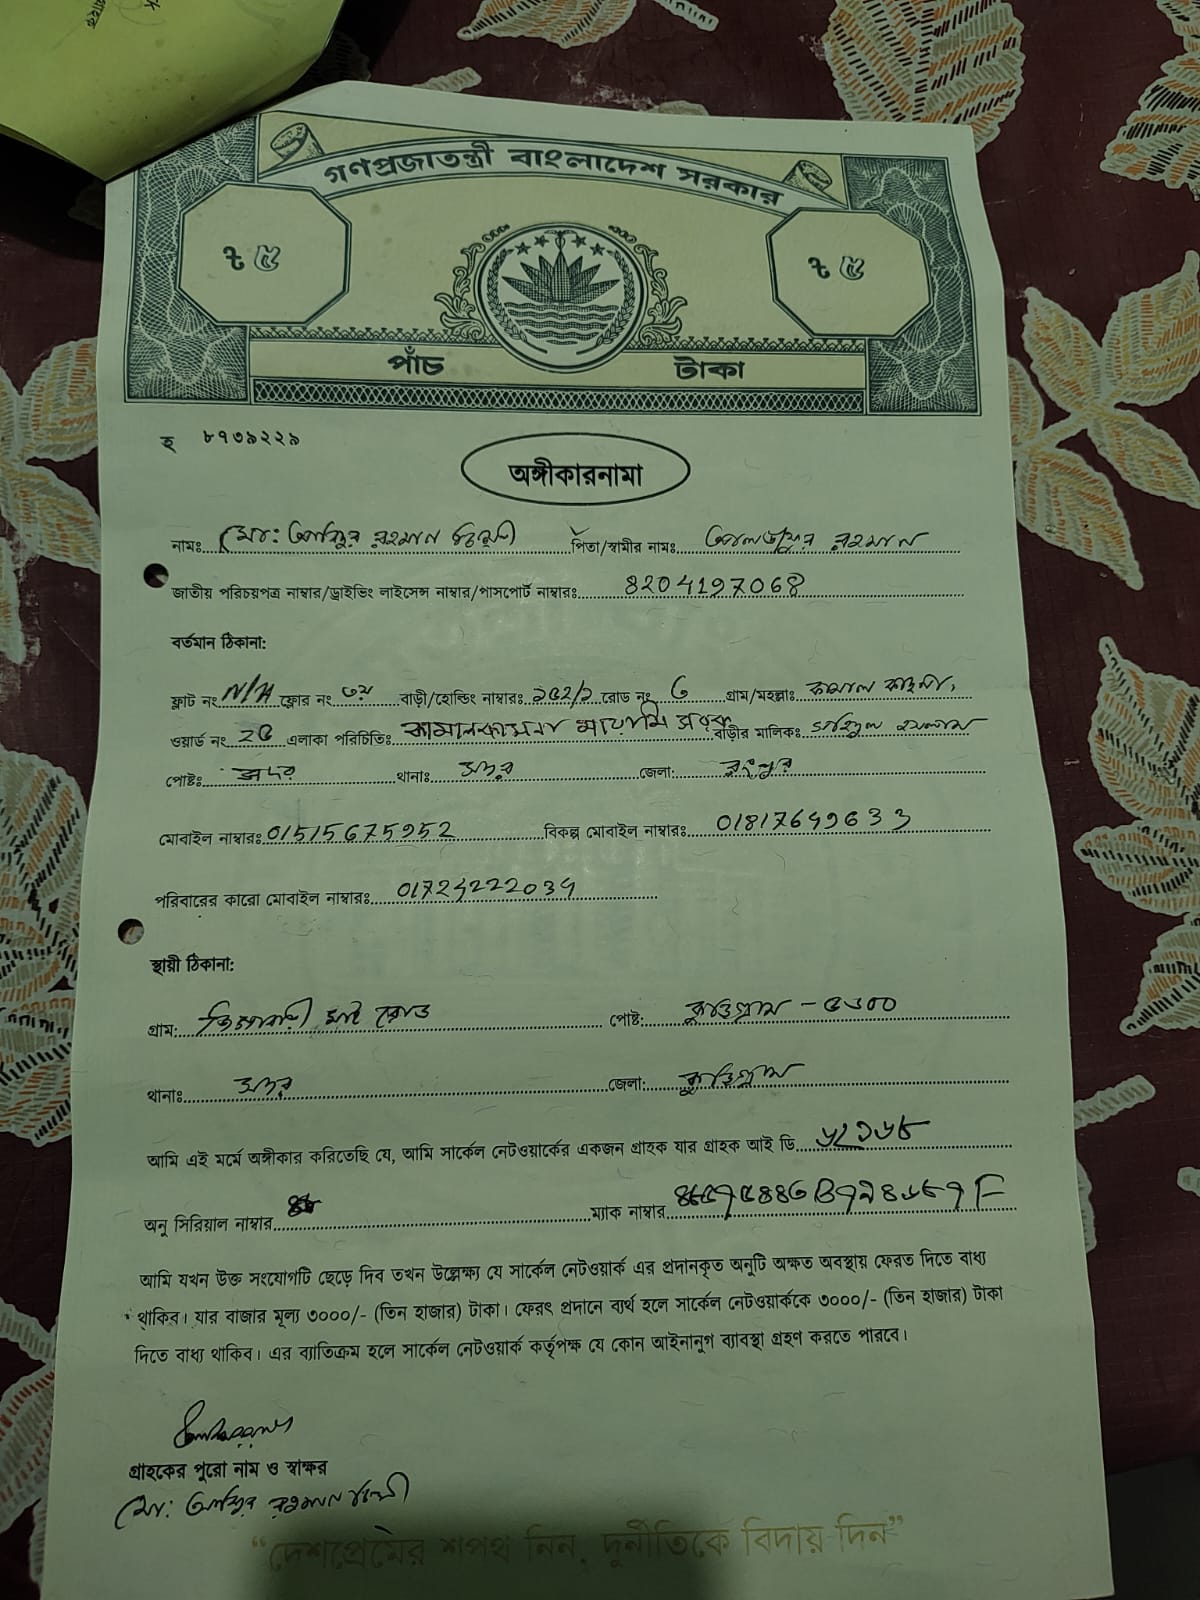 গণপ্রজাতন্ত্রী বাংলাদেশ সরকার
৳ ৫ ৳ ৫
পাঁচ টাকা
হ ৮৭৩৯২২৯
অঙ্গীকারনামা
নামঃ মো: রহমান পিতা/স্বামীর নামঃ রহমান
জাতীয় পরিচয়পত্র নাম্বার/ড্রাইভিং লাইসেন্স নাম্বার/পাসপোর্ট নাম্বারঃ 8204197068
বর্তমান ঠিকানা:
ফ্লাট নং N/A ফ্লোর নং ৩য় বাড়ী/হোল্ডিং নাম্বারঃ রোড নং গ্রাম/মহল্লাঃ
ওয়ার্ড নং এলাকা পরিচিতিঃ বাড়ীর মালিকঃ ইসলাম
পোষ্টঃ সদর থানাঃ সদর জেলা: রংপুর
মোবাইল নাম্বারঃ 01515675952 বিকল্প মোবাইল নাম্বারঃ 01817649633
পরিবারের কারো মোবাইল নাম্বারঃ 01724222034
স্থায়ী ঠিকানা:
গ্রাম: রোড পোষ্ট: কুড়িগ্রাম - ৫৬০০
থানাঃ সদর জেলা: কুড়িগ্রাম
আমি এই মর্মে অঙ্গীকার করিতেছি যে, আমি সার্কেল নেটওয়ার্কের একজন গ্রাহক যার গ্রাহক আই ডি
অনু সিরিয়াল নাম্বার ম্যাক নাম্বার
আমি যখন উক্ত সংযোগটি ছেড়ে দিব তখন উল্লেক্ষ্য যে সার্কেল নেটওয়ার্ক এর প্রদানকৃত অনুটি অক্ষত অবস্থায় ফেরত দিতে বাধ্য
থাকিব। যার বাজার মূল্য ৩০০০/- (তিন হাজার) টাকা। ফেরৎ প্রদানে ব্যর্থ হলে সার্কেল নেটওয়ার্ককে ৩০০০/- (তিন হাজার) টাকা
দিতে বাধ্য থাকিব। এর ব্যাতিক্রম হলে সার্কেল নেটওয়ার্ক কর্তৃপক্ষ যে কোন আইনানুগ ব্যাবস্থা গ্রহণ করতে পারবে।
গ্রাহকের পুরো নাম ও স্বাক্ষর
মো: রহমান
“দেশপ্রেমের শপথ নিন, দুর্নীতিকে বিদায় দিন”